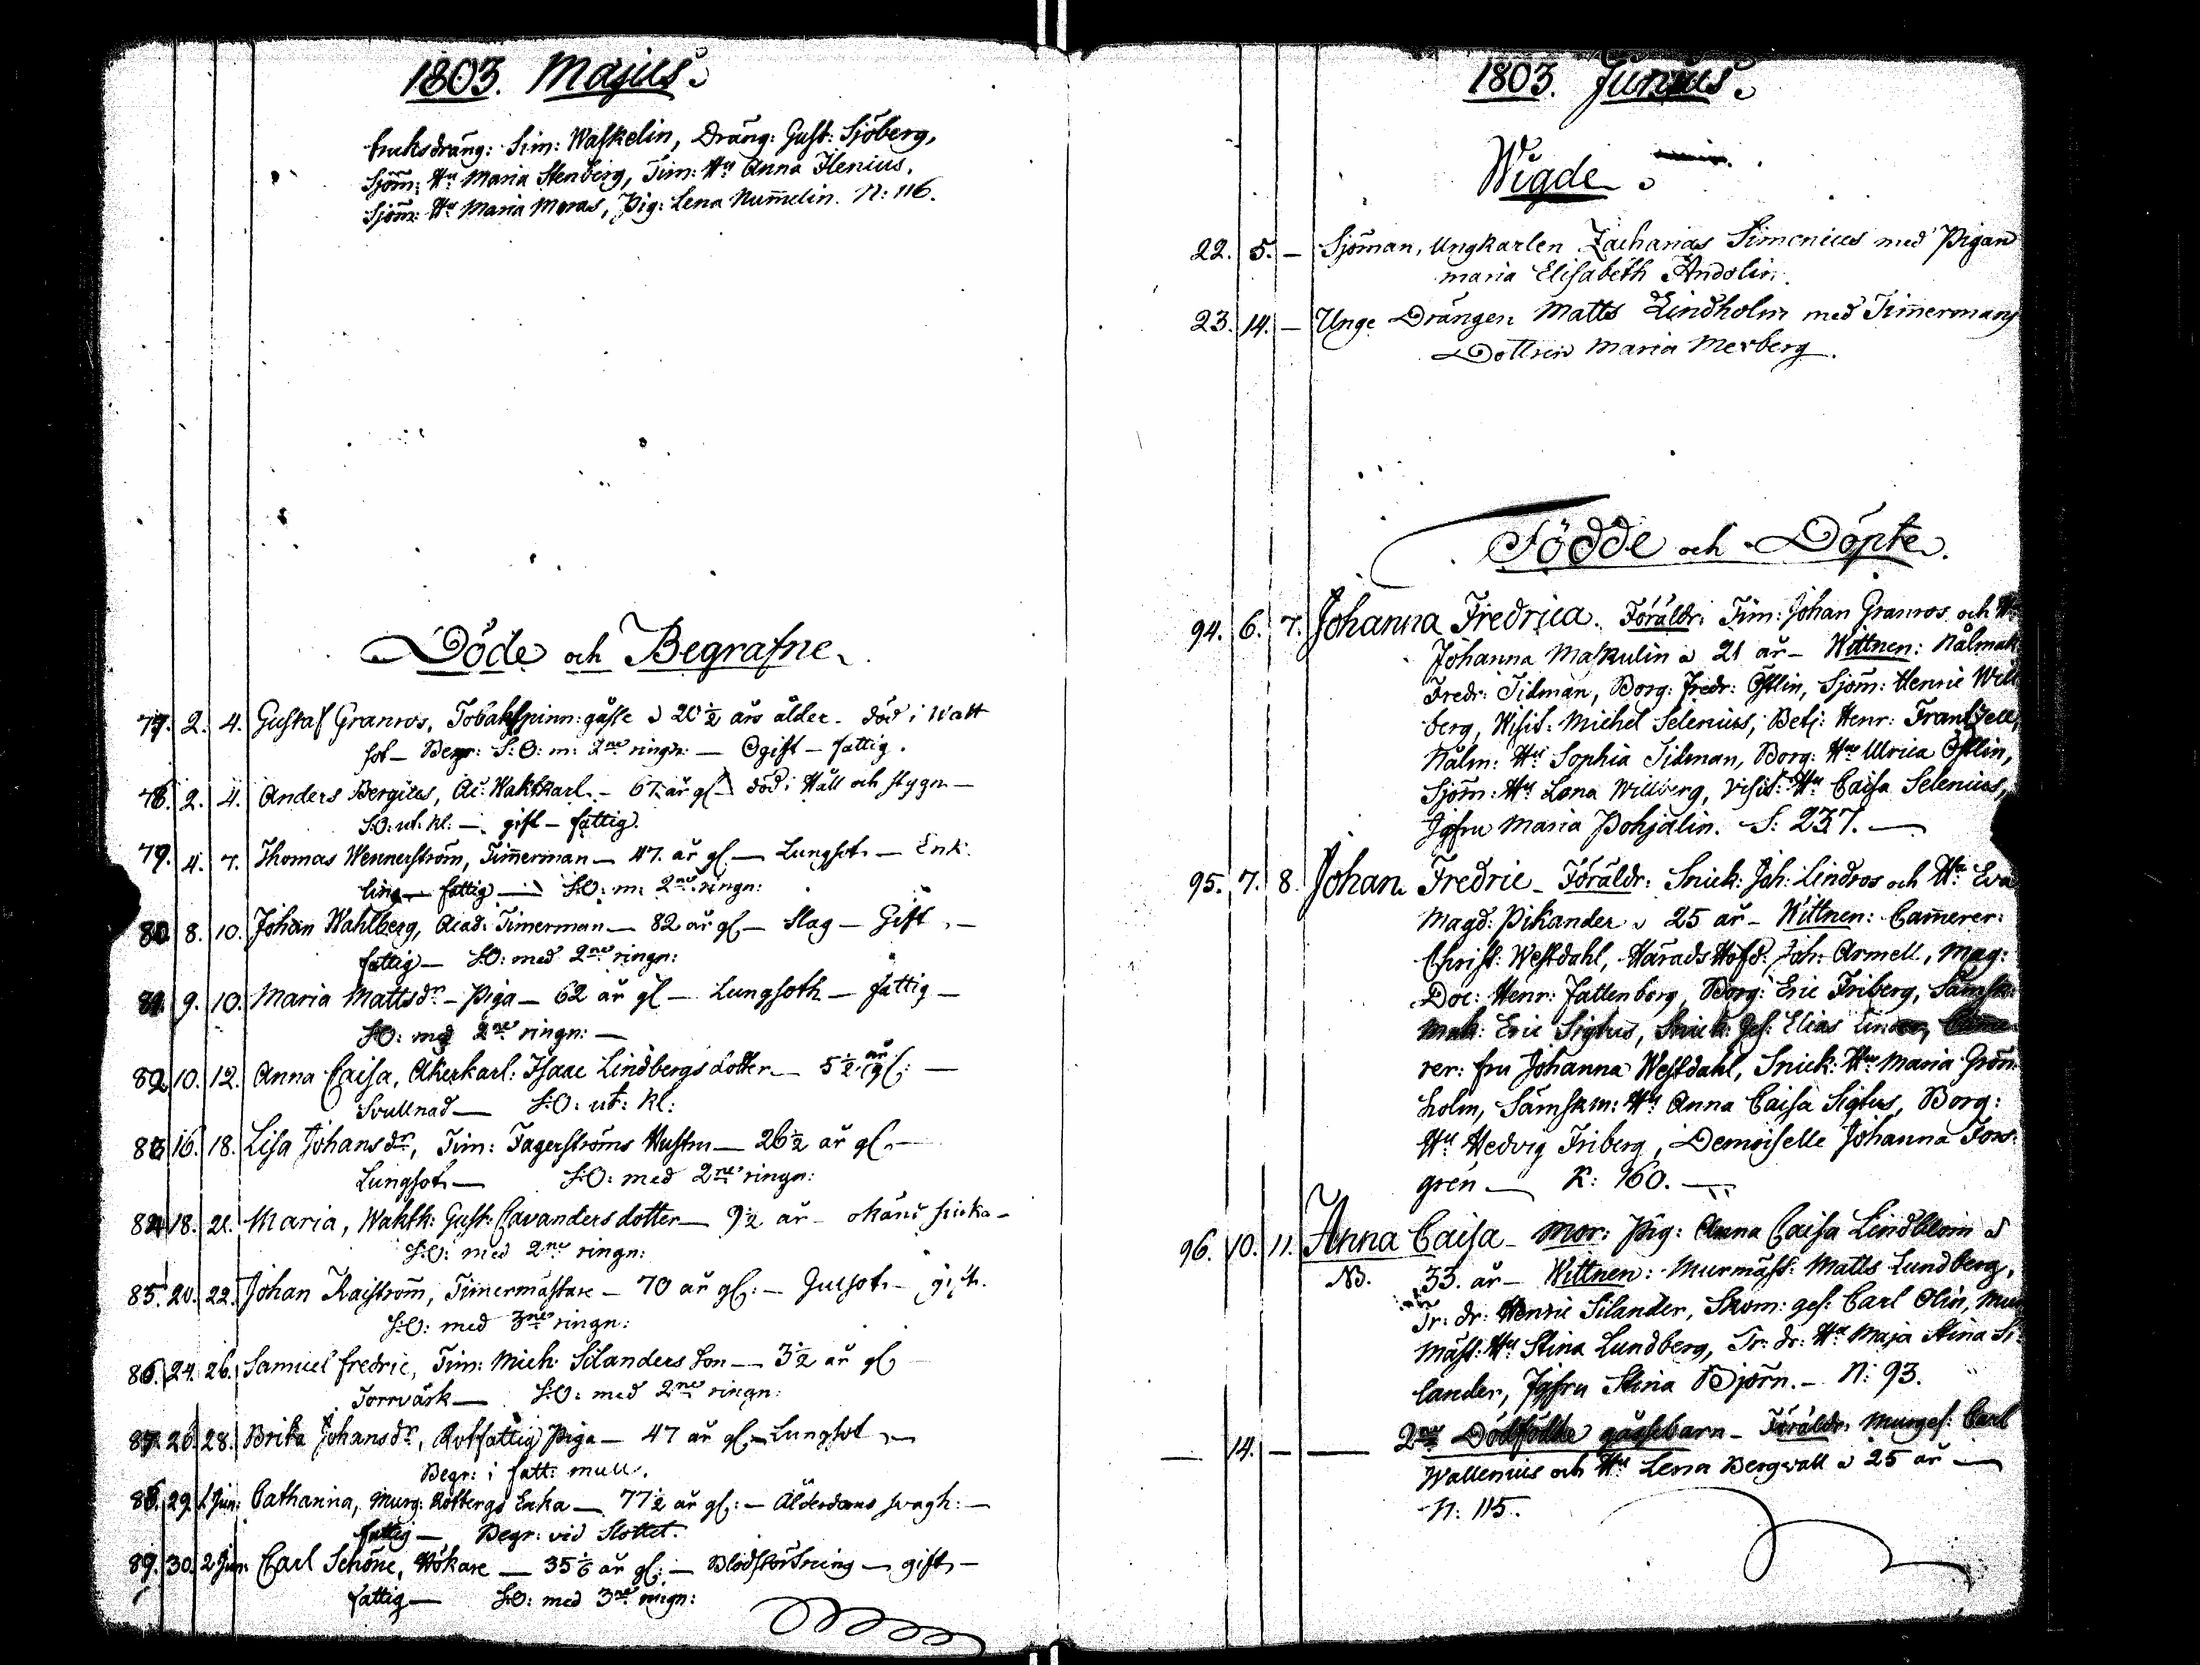 1803. Majus.
bruksdräng: Sim: Waskelin, Dräng: Gust: Sjöberg,
Sjöm: Hu Maria Stenberg, Tim: Hu Anna Ilenius,
Sjöm: Hu Maria Moras, Pig: Lena Num̄elin. N: 116.
Döde och Begrafne.
77. 2. 4. Gustaf Granros, Tobakspinn: gässe a 20½ års ålder - död i Watt
sot - Begr: S:O: m: 2ne ringn: - Ogift - fattig.
78. 2. 4. Anders Bergius, Ac: Waktkarl - 67 år gl - död i Håll och stygn -
S:O: ut: kl: - gift - fattig.
79. 4. 7. Thomas Wennerström, Tim̄erman - 47. år gl - Lungsot - Enk
ling - fattig - S:O: m: 2ne ringn:
80. 8. 10. Johan Wahlberg, Acad: Tim̄erman - 82 år gl - Slag - Gift -
fattig - S:O: med 2ne ringn:
81. 9. 10. Maria Mattsdr - Piga - 62 år gl - Lungsoth - fattig -
S:O: med 2ne ringn: -
82. 10. 12. Anna Caisa, Åkerkarl: Isaac Lindbergs dotter - 5½ år gl: -
Svullnad - S:O: ut: kl:
83. 16. 18. Lisa Johansdr, Tim: Fagerströms Hustru - 26½ år gl -
Lungsot - S:O: med 2ne ringn:
84. 18. 21. Maria, Wakth: Gust: Cavanders dotter - 9½ år - okänd siuka -
S:O: med 2ne ringn:
85. 20. 22. Johan Kaiström, Tim̄ermästare - 70 år gl: - Gulsot - gift.
S:O: med 3ne ringn:
86. 24. 26. Samuel Fredric, Tim: Mich: Silanders Son - 3½ år gl
Torrvärk - S:O: med 2ne ringn:
87. 26. 28. Brita Johansdr, Rotfattig Piga - 47 år gl - Lungsot -
Begr: i fatt: mull.
88. 29. 1 Jun: Catharina, Murg: Rotbergs Enka - 77½ år gl: - Ålderdoms svagh: -
fattig - Begr: vid Slottet.
89. 30. 2 Jun: Carl Schöne, Hökare - 35⅙ år gl: - Blodstörtning - gift -
fattig - S:O: med 3ne ringn:
1803. Junius.
Wigde.
22. 5. - Sjöman, Ungkarlen Zacharias Simenius med Pigan
Maria Elisabeth Andolin.
23. 14. - Unge Drängen Matts Lindholm med Tim̄ermans
Dottren Maria Merberg.
Födde och Döpte.
94. 6. 7. Johanna Fredrica. Föräldr: Tim: Johan Granros och Hu
Johanna Maskulin a 21 år - Wittnen: Nålmak
Fredr: Tidman, Borg: Fredr: Östlin, Sjöm: Henric Will
berg, Wisit: Michel Selenius, Betj: Henr: Frantzell,
Nålm: Hu Sophia Tidman, Borg: Hu Ulrica Östlin,
Sjöm: Hu Lena Willberg, Visit: Hu Caisa Selenius,
Jgfru Maria Pohjalin. S: 237. -
95. 7. 8. Johan Fredric - Föräldr: Snick: Joh: Lindros och Hu Eva
Magd: Pikander a 25 år - Wittnen: Cam̄erer:
Christ: Westdahl, Härads Höfd: Joh: Armell, Mag:
Doc: Henr: Fattenborg, Borg: Eric Friberg, Sämsk:
mak: Eric Sigtus, Snick: Ges: Elias Linden, Cam̄e
rer: fru Johanna Westdahl, Snick: Hu Maria Grön
holm, Sämskm: Hu Anna Caisa Sigtus, Borg:
Hu Hedvig Friberg, Demoiselle Johanna Fors
grén - K: 160. -
96. 10. 11. Anna Caisa - Mor: Pig: Anna Caisa Lindblom a
NB. 33. år - Wittnen: Murmäst: Matts Lundberg,
Tr: dr: Henric Silander, Skom: ges: Carl Olin, Mur
mäst: Hu Stina Lundberg, Tr: dr: Hu Maja Stina Si
lander, Jgfru Stina Björn. - N: 93.
- 14. - - 2ne Dödfödde gässebarn - Föräldr: Murges: Carl
Wallenius och Hu Lena Bergvall a 25 år -
N: 115.